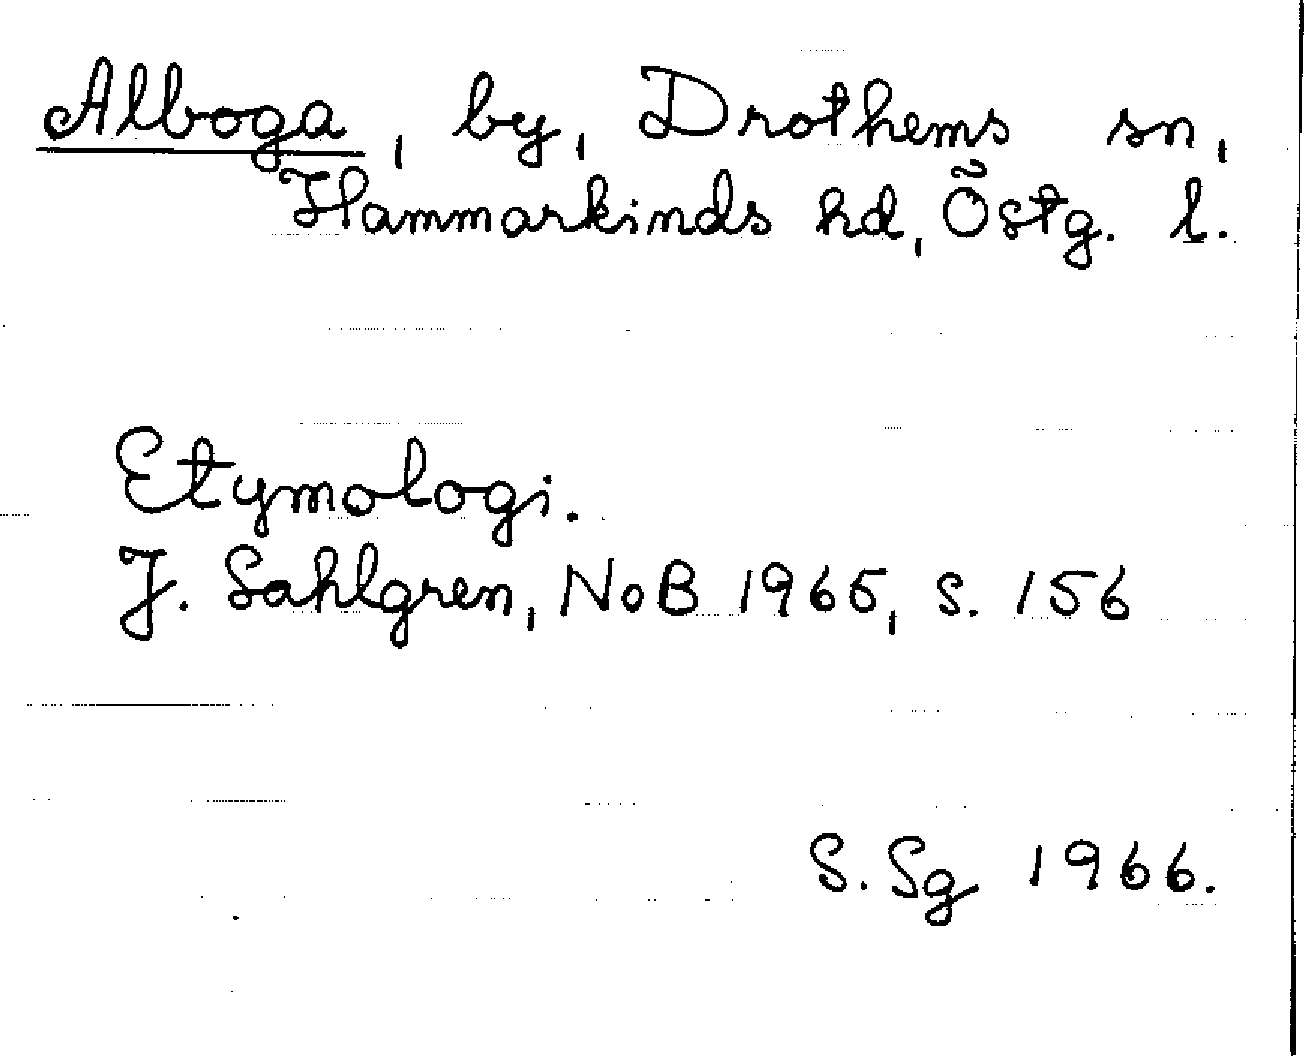 Alboga, by, Drothems sn,
Hammarkinds hd, Östg. l.
Etymologi.
J. Sahlgren, NoB 1965, s. 156
S. Sg 1966.